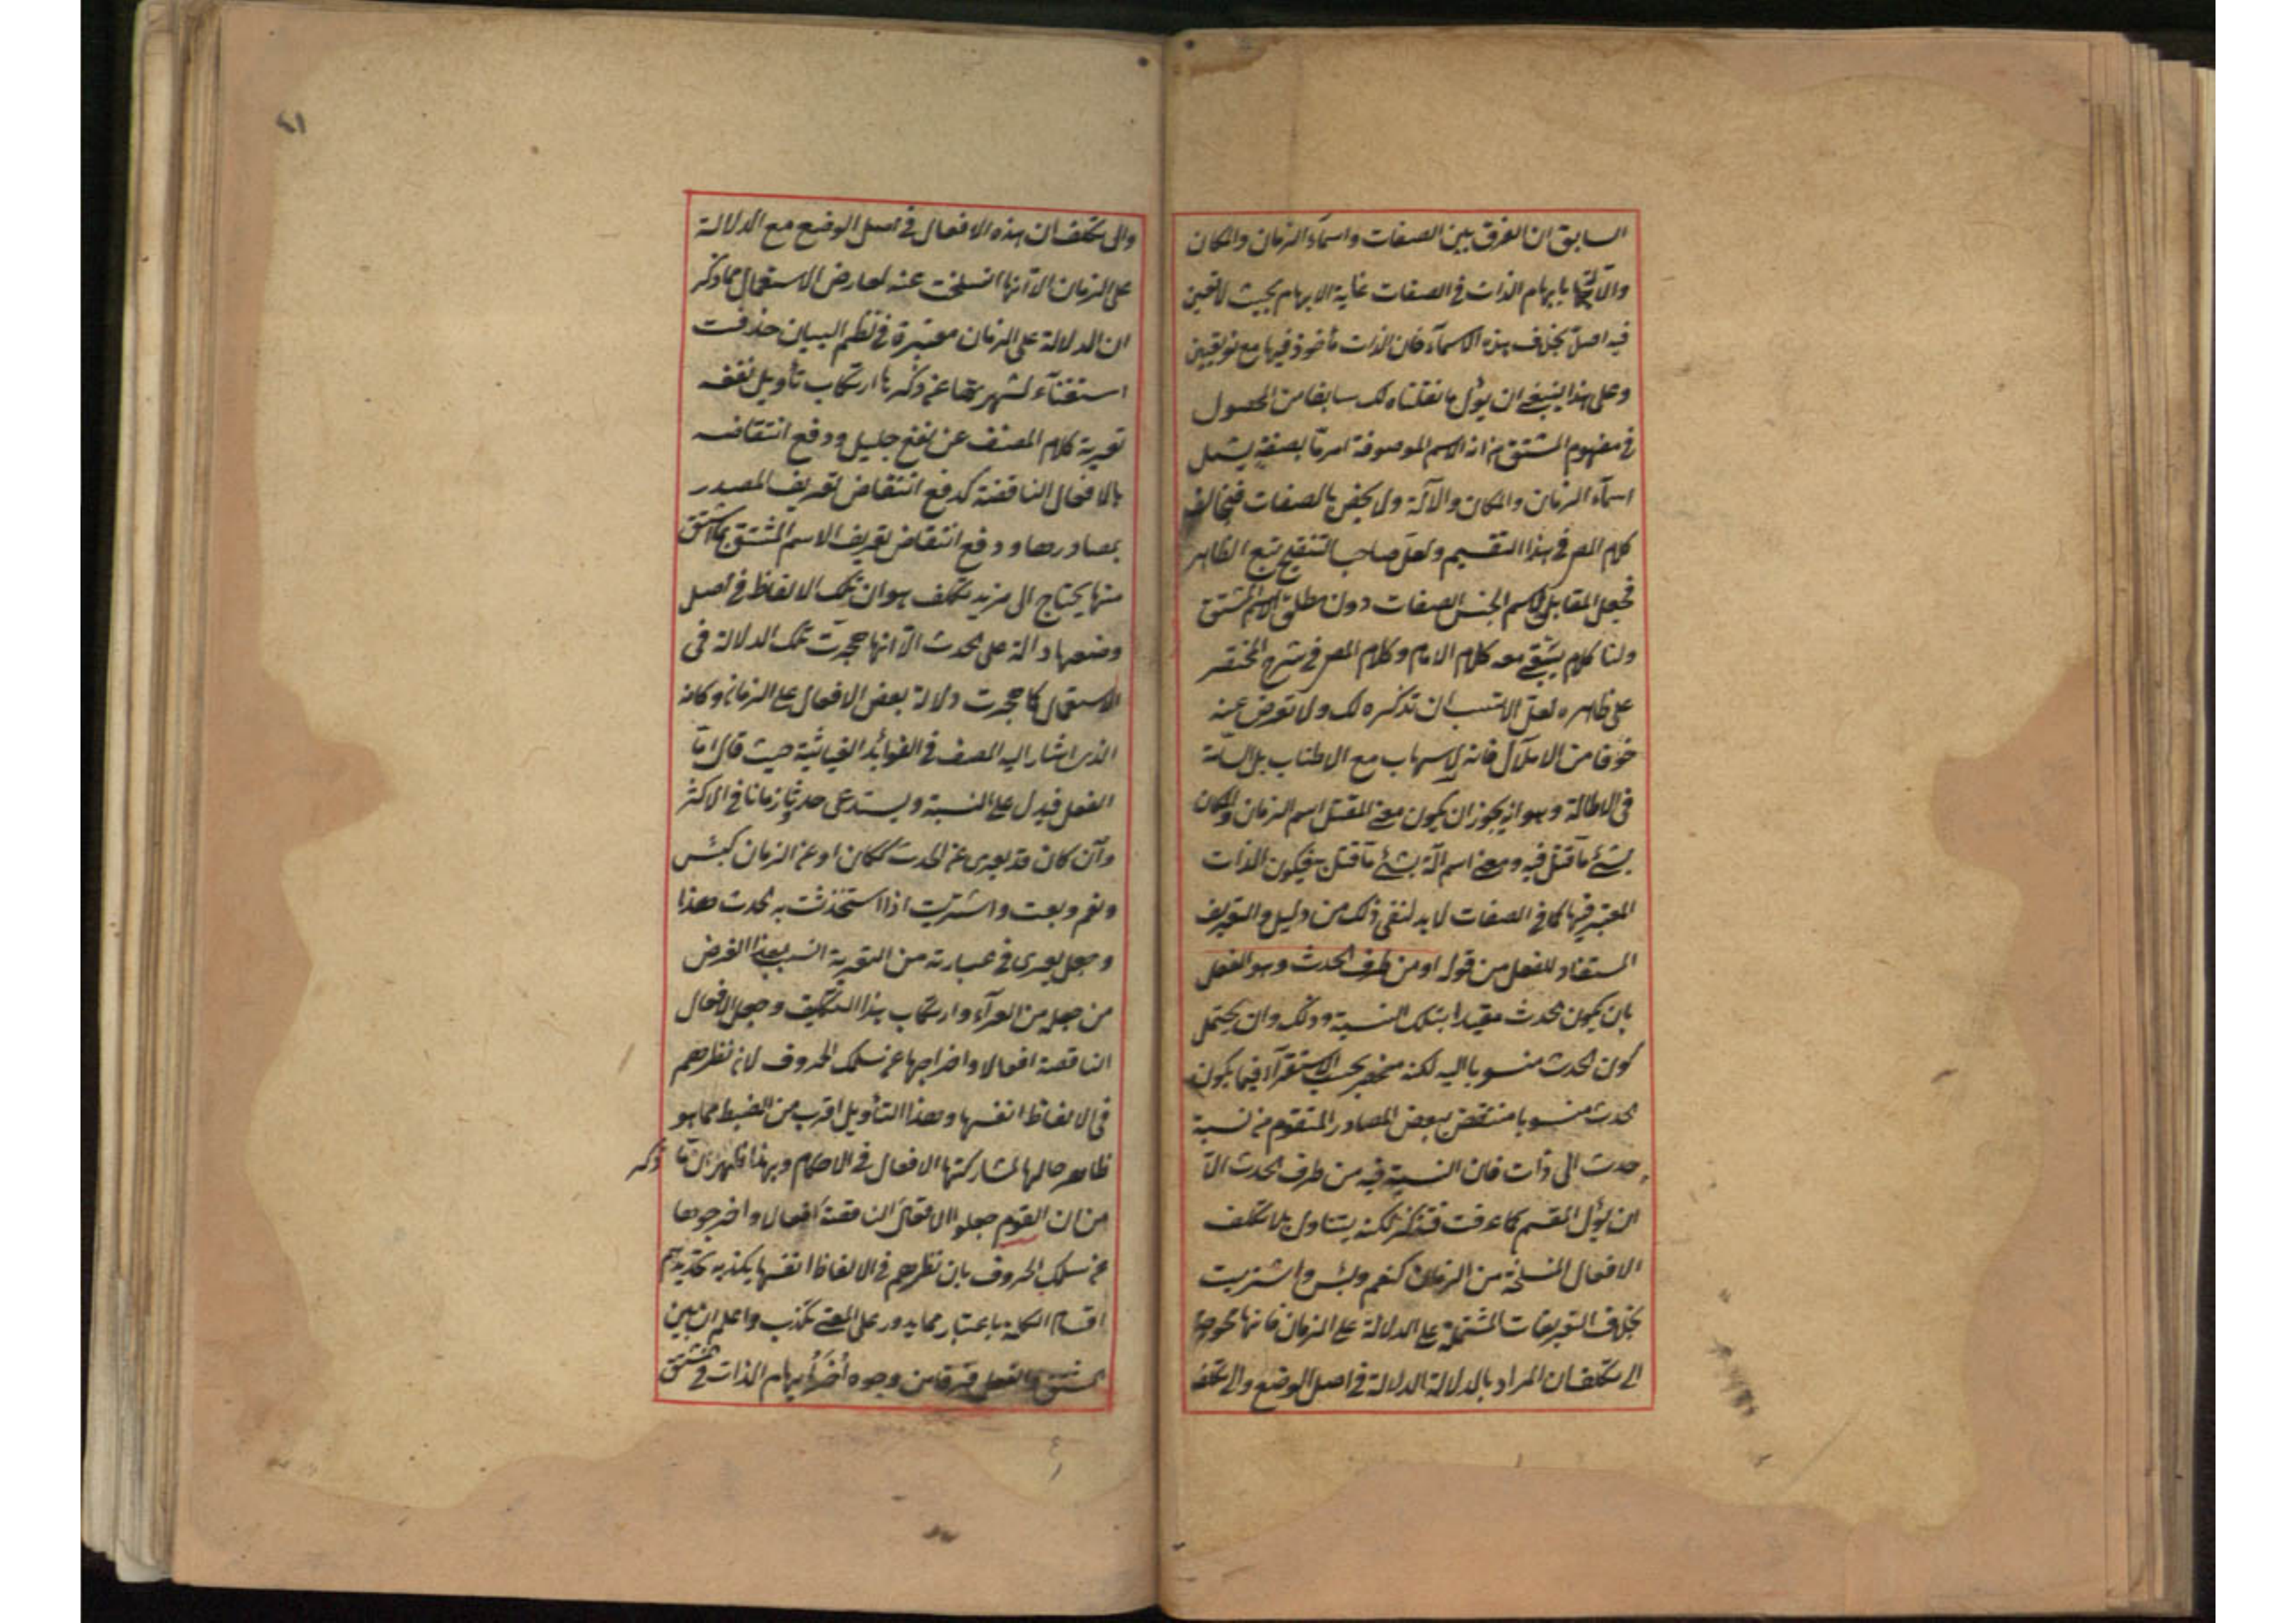 السابق ان الفرق بين الصفات واسماء الزمان والمكان
والآلة بابهام الذات في الصفات غاية الابهام بحيث لا تعين
فيه اصلا بخلاف هذه الاسماء فان الذات مأخوذ فيها مع نوع تعيين
وعلى هذا ينبغي ان يؤل ما نقلناه لك سابقا من المحصول
في مفهوم المشتق من انه الاسم لموصوفة امر ما بصفة يشمل
اسماء الزمان والمكان والآلة ولا يخص بالصفات فيخالف
كلام المص في هذا التقسيم ولعل صاحب التنقيح تبع الظاهر
فجعل المقابل لاسم الجنس الصفات دون مطلق الاسم المشتق
ولنا كلام يبقى معه كلام الامام وكلام المص في شرح المختصر
على ظاهره لعل الانسب ان نذكره لك ولا نعرض عنه
خوفا من الاملال فانه لا سهاب مع الاطناب بل السامة
في الاطالة وهو انه يجوز ان يكون معنى المقتل اسم الزمان والمكان
بشئ ما قتل فيه ومعنى اسم آلة بشئ ما قتل به فيكون الذات
المعتبر فيها كما في الصفات لا بد لنفى ذلك من دليل والتعريف
المستفاد للفعل من قوله او من طرف الحدث وهو الفعل
بان يكون الحدث مقيدا بتلك النسبة وذلك وان يحتمل
كون الحدث منسوبا اليه لكنه منحصر بحسب الاستقراء فيما يكون
الحدث منسوبا منتقض ببعض المصادر المتقوم من نسبة
حدث الى ذات فان النسبة فيه من طرف الحدث الا
ان يؤل المقسم كما عرفت فتذكر لكنه يتناول بلا تكلف
الافعال المنسلخة من الزمان كنعم وبئس واشتريت
بخلاف التعريفات المشتملة على الدلالة على الزمان فانها تحوج
الى تكلف ان المراد بالدلالة الدلالة في اصل الوضع والى تكلف
والى تكلف ان هذه الافعال في اصل الوضع مع الدلالة
على الزمان الا انها انسلخت عنه لعارض الاستعمال مما ذكر
ان الدلالة على الزمان معتبرة في نظم البيان حذفت
استغناء لشهرتها عن ذكرها ارتكاب تأويل نفعه
تعرية كلام المصنف عن نفع جليل ودفع انتقاضه
بالافعال الناقصة كدفع انتقاض تعريف المصدر
بمصادرها ودفع انتقاض تعريف الاسم المشتق بما اشتق
منها يحتاج الى مزيد تكلف هو ان تلك الالفاظ في اصل
وضعها دالة على الحدث الا انها هجرت تلك الدلالة في
الاستعمال كما هجرت دلالة بعض الافعال على الزمان وكانه
الذى اشار اليه المصنف في الفوائد الغياثية حيث قال اما
الفعل فيدل على النسبة ويستدعى حدثا وزمانا في الاكثر
وان كان قد يعرى عن الحدث ككان او عن الزمان كبئس
ونعم وبعت واشتريت اذا استحدثت به الحدث هذا
وجعل يعرى في عبارته من التعرية انسب بهذا الغرض
من جعله من العراء وارتكاب هذا التكليف وجعل الافعال
الناقصة افعالا واخراجها عن سلك الحروف لان نظرهم
في الالفاظ انفسها وهذا التأويل اقرب من الضبط مما هو
ظاهر حالها لمشاركتها الافعال في الاحكام وبهذا ظهر ان ما ذكر
من ان القوم جعلوا الافعال الناقصة افعالا واخرجوها
عن سلك الحروف بان نظرهم في الالفاظ انفسها يكذبه تحديدهم
اقسام الكلمة باعتبار مما يدور على المعنى تكذب واعلم ان بين
المشتق والفعل فرقا من وجوه أخر ابهام الذات في المشتق